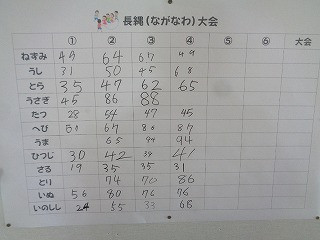 長縄(ながなわ)大会
① ② ③ ④ ⑤ ⑥ 大会
ねずみ 47 64 67
うし 31 50 45 68
とら 35 47 62 65
うさぎ 45 86 88
たつ 28 54 47 45
へび 50 67 80 87
うま 65 94
ひつじ 30 42 39 41
さる 19 35 35 31
とり 74 70 86
いぬ 56 80 76 76
いのしし 24 55 33 68